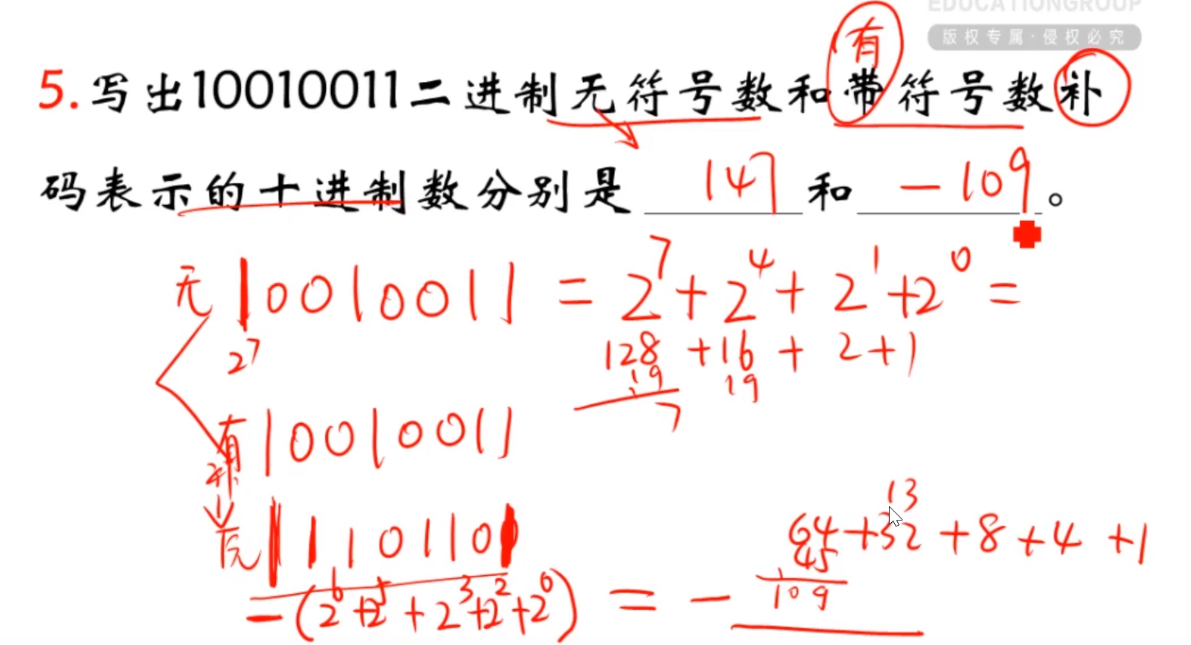 EDUCATIONGROUP
版权专属·侵权必究
有
5.写出10010011二进制无符号数和带符号数补
码表示的十进制数分别是 147 和 -109。
无 10010011 = 2^7+2^4+2^1+2^0 =
2^7 128+16+2+1
19 19
7
有 10010011
补
13
原 11101101 64+32+8+4+1
45
-(2^6+2^5+2^3+2^2+2^0) = - 109